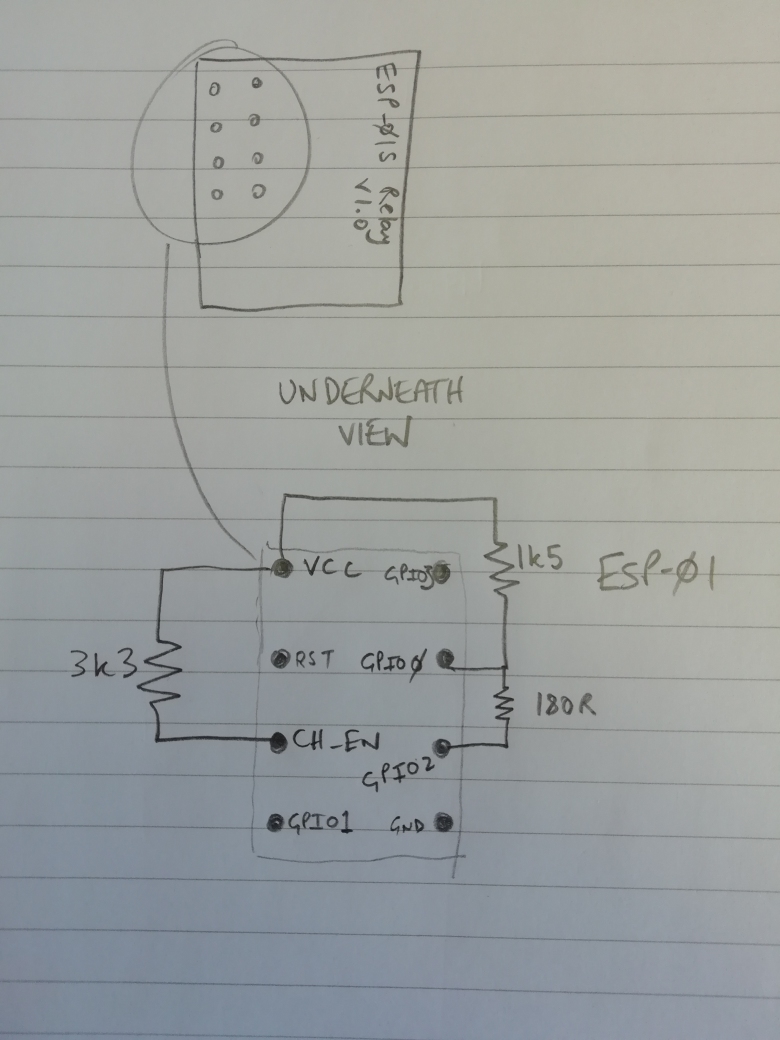 ESP-Ø1S Relay
V1.0
UNDERNEATH
VIEW
1k5
ESP-Ø1
VCC GPIO3
3k3
RST GPIOØ
180R
CH_EN
GPIO2
GPIO1 GND